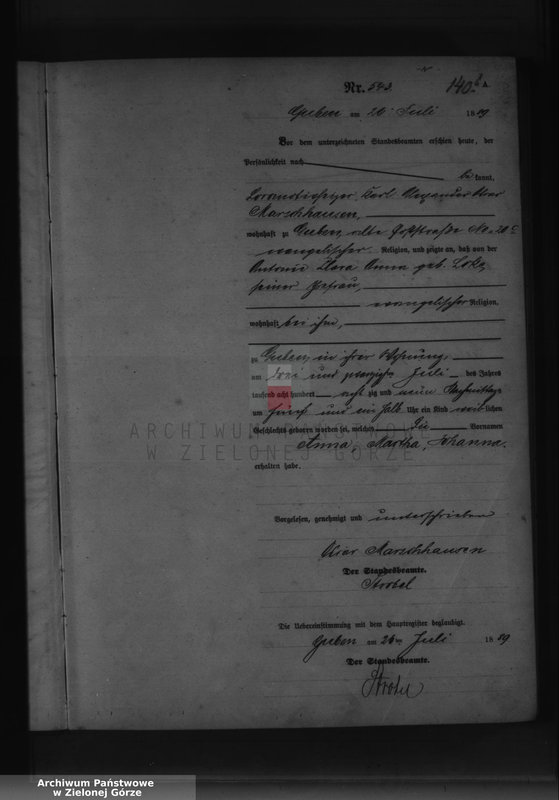 Nr. 543.
140
Guben am 26. Juli 1889
Vor dem unterzeichneten Standesbeamten erschien heute, der
Persönlichkeit nach
be kannt,
Karl Alexander
Marschhausen,
wohnhaft zu Guben, alte Poststraße No 20
evangelischer Religion, und zeigte an, daß von der
Antonie Klara Anna geb.
seiner Ehefrau,
evangelischer Religion,
wohnhaft bei ihm,
zu Guben, in ihrer Wohnung,
am drei und zwanzigsten Juli des Jahres
tausend acht hundert acht zig und neun Nachmittags
um fünf und ein halb Uhr ein Kind weiblichen
Geschlechts geboren worden sei, welches die Vornamen
Anna, Martha, Johanna
erhalten habe.
Vorgelesen, genehmigt und unterschrieben
Marschhausen
Der Standesbeamte.
Strobel
Die Uebereinstimmung mit dem Hauptregister beglaubigt.
Guben am 26ten Juli 1889
Der Standesbeamte.
Strobel
ARCHIWUM PAŃSTWOWE
W ZIELONEJ GÓRZE
Archiwum Państwowe
w Zielonej Górze